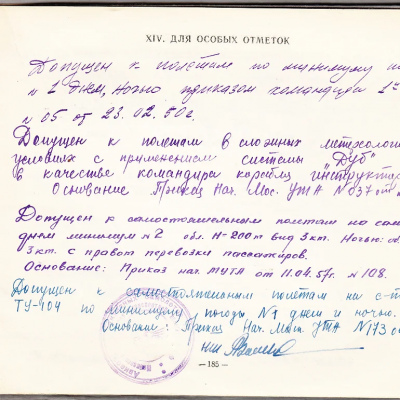 XIV. ДЛЯ ОСОБЫХ ОТМЕТОК
Допущен к полетам по минимуму
N 1 днем, ночью приказом командира 1
N 05 от 23.02.50г.
Допущен к полетам в сложных метеорологи
условиях с применением системы "Дуб"
в качестве командира корабля инструктора
Основание Приказ Нач. Мос. УТА N 037 от
Допущен к самостоятельным полетам на сам
днем минимум N 2 обл. Н-200м вид 3км. Ночью:
3км. с правом перевозки пассажиров.
Основание: Приказ нач. МУТА от 11.04.57г. N 108.
Допущен к самостоятельным полетам на с-т
ТУ-104 по минимуму погоды N1 днем и ночью.
Основание: Приказ Нач. Моск. УТА N173
НШ
— 185 —